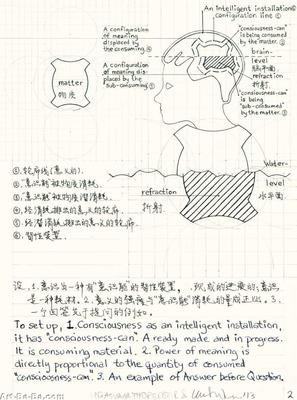 An Intelligent installation⑥
configuration line①
A configuration
of meaning
displaced by
the consuming.④
"consiousness-can"
is being consumed
by the matter.②
brain-
level
脑平面
refraction
折射.
A configuration
of meaning dis-
placed by the
"sub-consuming".⑤
"consciousness-can"
is being
"sub-consumed"
by the matter.③
matter
物质
water-
level
水平面
refraction
折射.
①.轮廓线(意义的).
②."意识瓶"被物质消耗.
③."意识瓶"被物质潜消耗.
④.经消耗排出的意义的轮廓.
⑤.经潜消耗排出的意义的轮廓.
⑥.智性装置.
设.1.意识为一种有"意识瓶"的智性装置,现成的进展的;意识
是一种耗材。2.意义的强度与"意识瓶"消耗的量成正比。3.
一个回答先于提问的例如。
To set up, 1.Consciousness as an intelligent installation,
it has "consciousness-can". A ready made and in progress.
It is consuming material. 2. Power of meaning is
directly proportional to the quantity of consumed
"consciousness-can". 3. An example of Answer before Question.
2